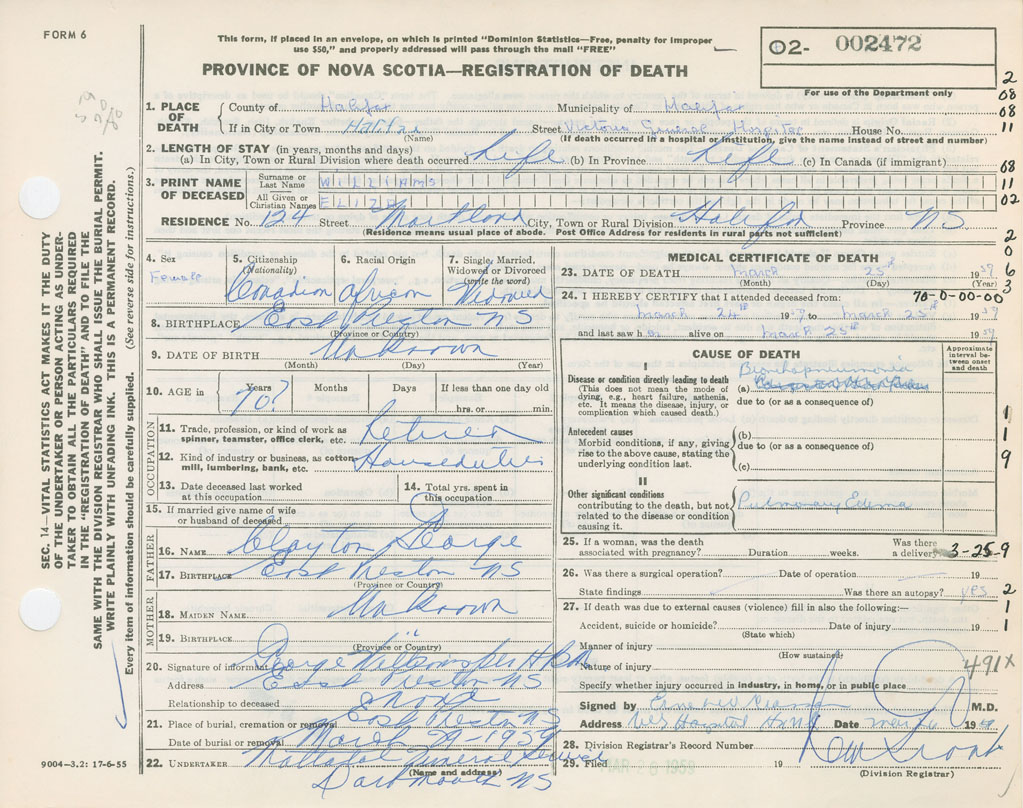 FORM 6
This form, if placed in an envelope, on which is printed "Dominion Statistics—Free, penalty for improper
use $50," and properly addressed will pass through the mail "FREE"
02- 002472
For use of the Department only
PROVINCE OF NOVA SCOTIA—REGISTRATION OF DEATH
1. PLACE OF DEATH County of Halifax Municipality of Halifax
If in City or Town Halifax Street Victoria General Hospital House No.
(Name) (If death occurred in a hospital or institution, give the name instead of street and number)
2. LENGTH OF STAY (in years, months and days)
(a) In City, Town or Rural Division where death occurred Life (b) In Province Life (c) In Canada (if immigrant)
3. PRINT NAME OF DECEASED Surname or Last Name WILLIAMS
All Given or Christian Names ELIZA
RESIDENCE No. 124 Street Maitland City, Town or Rural Division Halifax Province NS
(Residence means usual place of abode. Post Office Address for residents in rural parts not sufficient)
2
08
08
11
68
11
02
2
0
6
3
4. Sex Female
5. Citizenship (Nationality) Canadian
6. Racial Origin African
7. Single, Married, Widowed or Divorced (write the word) Widowed
8. BIRTHPLACE East Preston NS
(Province or Country)
9. DATE OF BIRTH Unknown
(Month) (Day) (Year)
10. AGE in Years 70? Months Days If less than one day old
hrs. or min.
OCCUPATION
11. Trade, profession, or kind of work as spinner, teamster, office clerk, etc. Retired
12. Kind of industry or business, as cotton-mill, lumbering, bank, etc. Houseduties
13. Date deceased last worked at this occupation
14. Total yrs. spent in this occupation
15. If married give name of wife or husband of deceased
FATHER
16. NAME Clayton George
17. BIRTHPLACE East Preston NS
(Province or Country)
MOTHER
18. MAIDEN NAME Unknown
19. BIRTHPLACE "
(Province or Country)
20. Signature of informant George Williams
Address East Preston NS
Relationship to deceased
21. Place of burial, cremation or removal East Preston NS
Date of burial or removal March 29-1959
22. UNDERTAKER Mattatall Funeral
(Name and address)
Dartmouth NS
MEDICAL CERTIFICATE OF DEATH
23. DATE OF DEATH March 25th 1959
(Month) (Day) (Year)
24. I HEREBY CERTIFY that I attended deceased from: 70-0-00-00
March 24th 1959 to March 25th 1959
and last saw h alive on March 25th 1959
CAUSE OF DEATH
Approximate interval between onset and death
I
Disease or condition directly leading to death (a) Bronchopneumonia
(This does not mean the mode of dying, e.g., heart failure, asthenia, etc. It means the disease, injury, or complication which caused death.)
due to (or as a consequence of)
Antecedent causes (b)
Morbid conditions, if any, giving rise to the above cause, stating the underlying condition last.
due to (or as a consequence of)
(c)
II
Other significant conditions contributing to the death, but not related to the disease or condition causing it.
Pulmonary Edema
1
1
9
25. If a woman, was the death associated with pregnancy? Duration weeks. Was there a delivery? 3-25-9
26. Was there a surgical operation? Date of operation 19
State findings Was there an autopsy? yes 2
27. If death was due to external causes (violence) fill in also the following:— 1
Accident, suicide or homicide? Date of injury 19 1
(State which)
Manner of injury
(How sustained)
Nature of injury 491X
Specify whether injury occurred in industry, in home, or in public place
Signed by M.D.
Address V.G. Hospital Date 1959
28. Division Registrar's Record Number
29. Filed MAR 26 1959 19
(Division Registrar)
9004—3.2: 17-6-55
SEC. 14—VITAL STATISTICS ACT MAKES IT THE DUTY
OF THE UNDERTAKER OR PERSON ACTING AS UNDER-
TAKER TO OBTAIN ALL THE PARTICULARS REQUIRED
IN THE "REGISTRATION OF DEATH" AND TO FILE THE
SAME WITH THE DIVISION REGISTRAR WHO SHALL ISSUE THE BURIAL PERMIT.
WRITE PLAINLY WITH UNFADING INK. THIS IS A PERMANENT RECORD.
Every item of information should be carefully supplied. (See reverse side for instructions.)